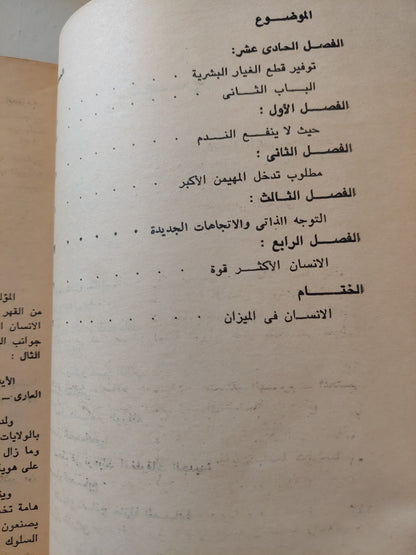 الموضـــوع
الفصل الحادى عشر:
توفير قطع الغيار البشرية
الباب الثانى
الفصل الأول :
حيث لا ينفع الندم
الفصل الثانى :
مطلوب تدخل المهيمن الأكبر
الفصل الثالث :
التوجه الذاتى والاتجاهات الجديدة
الفصل الرابع :
الانسان الأكثر قوة
الختام
الانسان فى الميزان
من القهر
الانسان
جوانب
الثال :
العارى ــ
بالولايات
وما زال
على
هامة
يصنعون
السلوك